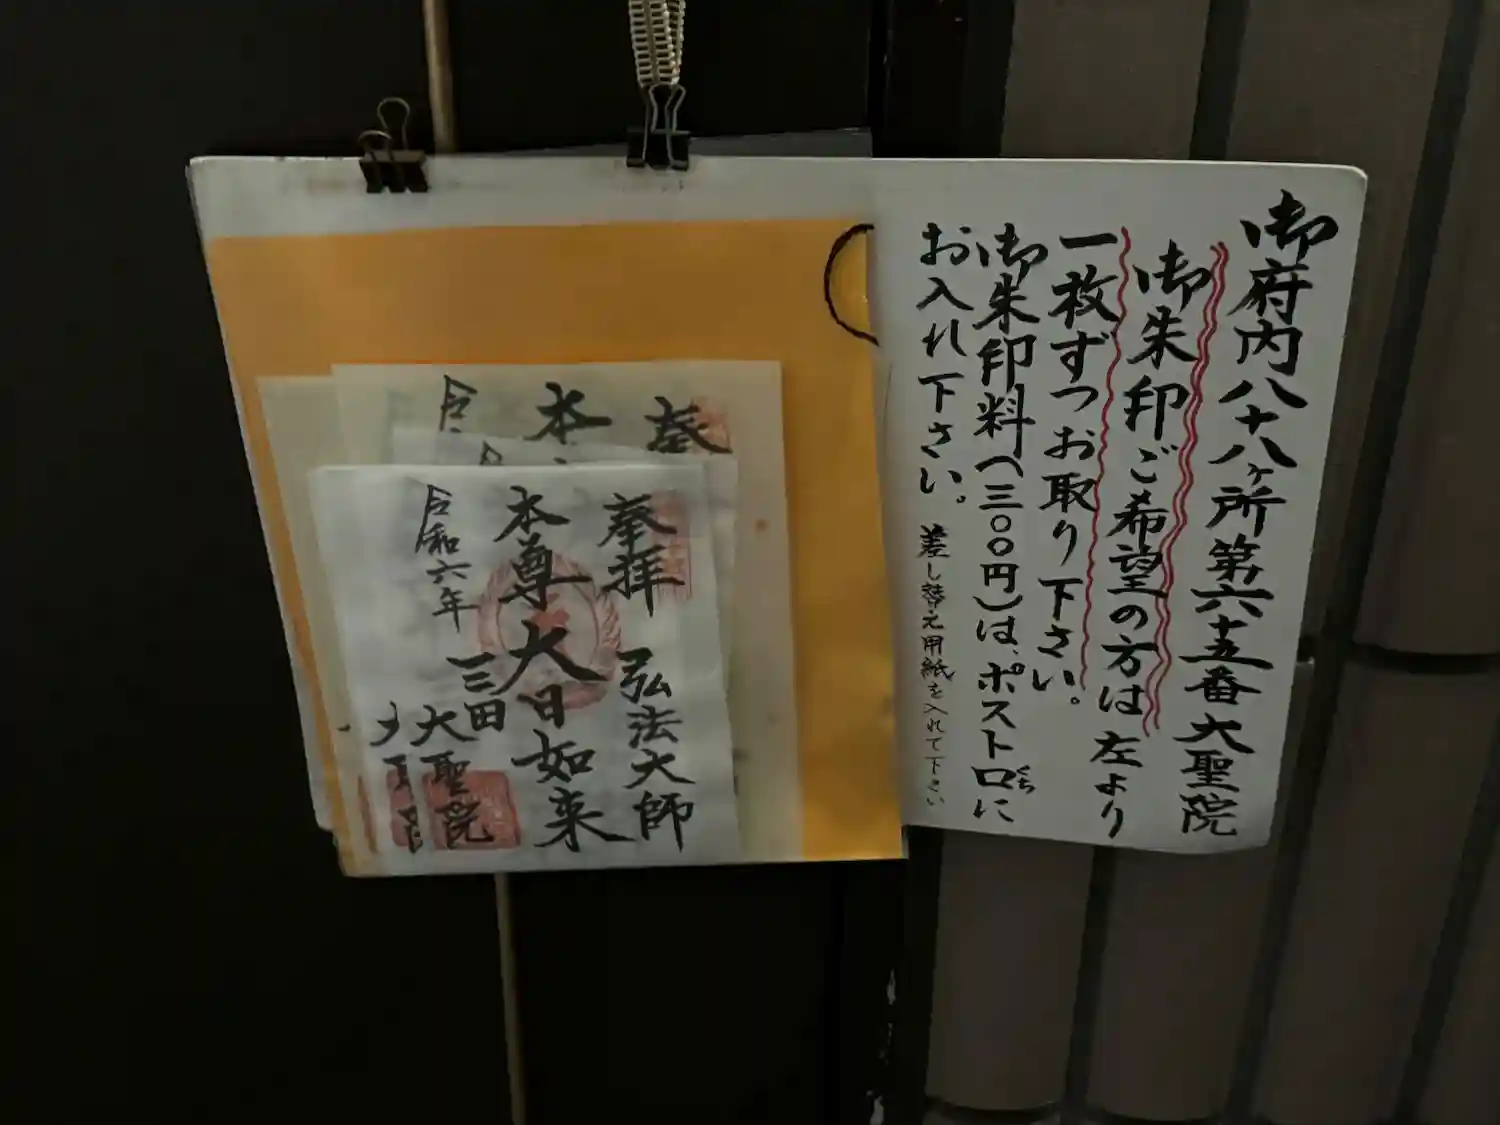 御府内八十八ヶ所第六十五番 大聖院
御朱印ご希望の方は 左より
一枚ずつお取り下さい。
御朱印料(三〇〇円)は、ポスト口に
ぐち
お入れ下さい。 差し替え用紙を入れて下さい
奉拝 弘法大師
本尊 大日如来
三田
大聖院
令和六年
奉
本
令